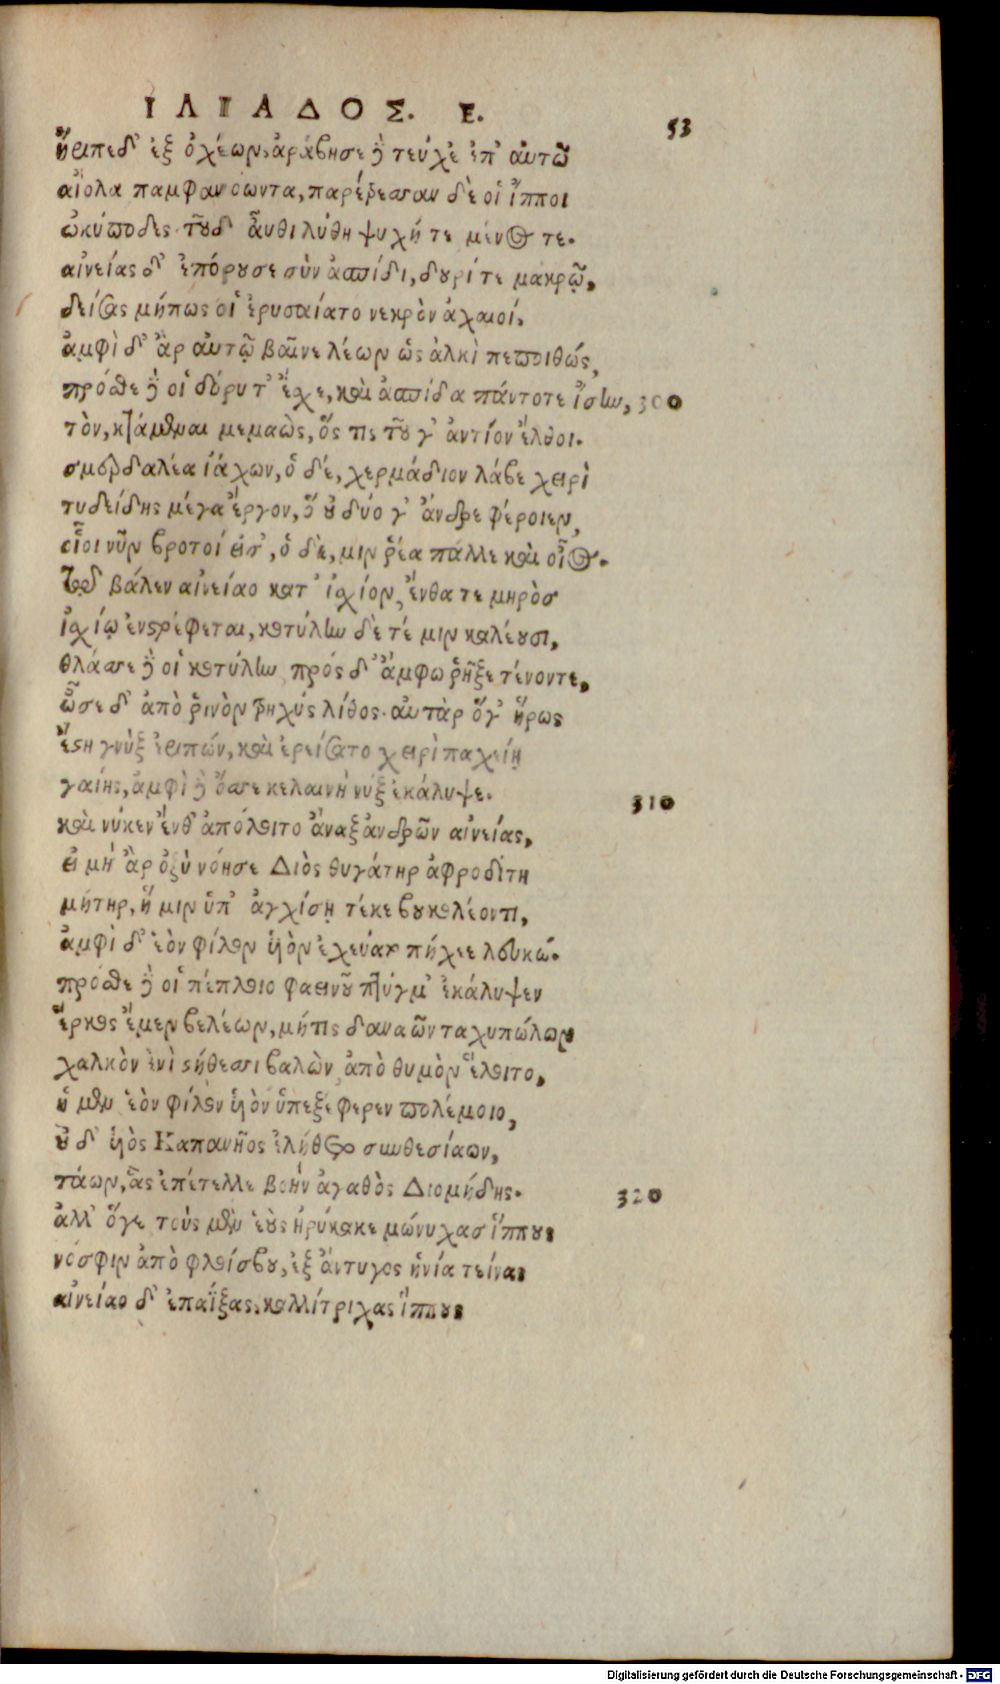 ΙΛΙΑΔΟΣ. Ε.
53
ἤειπε δ' ἐξ ὀχέων, ἀράβησε δὲ τεύχε' ἐπ' αὐτῷ
αἰόλα παμφανόωντα, παρέτρεσσαν δὲ οἱ ἵπποι
ὠκύποδες. τοῦ δ' αὖθι λύθη ψυχή τε μένος τε.
αἰνείας δ' ἐπόρουσε σὺν ἀσπίδι, δουρί τε μακρῷ,
δείσας μήπως οἱ ἐρυσαίατο νεκρὸν ἀχαιοί.
ἀμφὶ δ' ἂρ αὐτῷ βαῖνε λέων ὣς ἀλκὶ πεποιθώς,
πρόσθε δὲ οἱ δόρυ τ' ἔχε, καὶ ἀσπίδα πάντοτε ἴσην, 300
τὸν, κτάμεναι μεμαὼς, ὅς τις τοῦ γ' ἀντίον ἔλθοι.
σμερδαλέα ἰάχων, ὁ δέ, χερμάδιον λάβε χειρὶ
τυδείδης μέγα ἔργον, ὃ οὐ δύο γ' ἄνδρε φέροιεν,
οἷοι νῦν βροτοί εἰσ', ὁ δὲ, μιν ῥέα πάλλε καὶ οἶος.
τῷ δ βάλεν αἰνείαο κατ' ἰσχίον, ἔνθα τε μηρὸσ
ἰσχίῳ ἐνστρέφεται, κοτύλην δέ τέ μιν καλέουσι,
θλάσσε δὲ οἱ κοτύλην πρός δ' ἄμφω ῥῆξε τένοντε,
ὦσε δ' ἀπὸ ῥινὸν τρηχύς λίθος. αὐτὰρ ὅγ' ἥρως
ἔστη γνὺξ ἐριπών, καὶ ἐρείσατο χειρὶ παχείῃ
γαίης, ἀμφὶ δὲ ὄσσε κελαινὴ νὺξ ἐκάλυψε. 310
καὶ νύκεν ἔνθ' ἀπόλοιτο ἄναξ ἀνδρῶν αἰνείας,
εἰ μὴ ἂρ ὀξὺ νόησε Διὸς θυγάτηρ ἀφροδίτη
μήτηρ, ἥ μιν ὑπ' ἀγχίσῃ τέκε βουκολέοντι,
ἀμφὶ δ' ἑὸν φίλον υἱὸν ἐχεύατο πήχεε λευκώ.
πρόσθε δὲ οἱ πέπλοιο φαεινοῦ πτύγμ' ἐκάλυψεν
ἕρκος ἔμεν βελέων, μήτις δαναῶν ταχυπώλων
χαλκὸν ἐνὶ στήθεσσι βαλὼν ἀπὸ θυμὸν ἕλοιτο,
ἡ μὲν ἑὸν φίλον υἱὸν ὑπεξέφερεν πολέμοιο,
οὐ δ' υἱὸς Καπανῆος ἐλήθετο συνθεσίαων,
τάων, ἃς ἐπέτελλε βοὴν ἀγαθὸς Διομήδης. 320
ἀλλ' ὅγε τοὺς μὲν ἑοὺς ἠρύκακε μώνυχασ ἵππους
νόσφιν ἀπὸ φλοίσβου, ἐξ ἄντυγος ἡνία τείνας
αἰνείαο δ' ἐπαΐξας, καλλίτριχας ἵππους